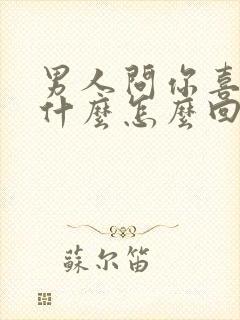 男人問你喜
什麼怎麼回
蘇尔笛